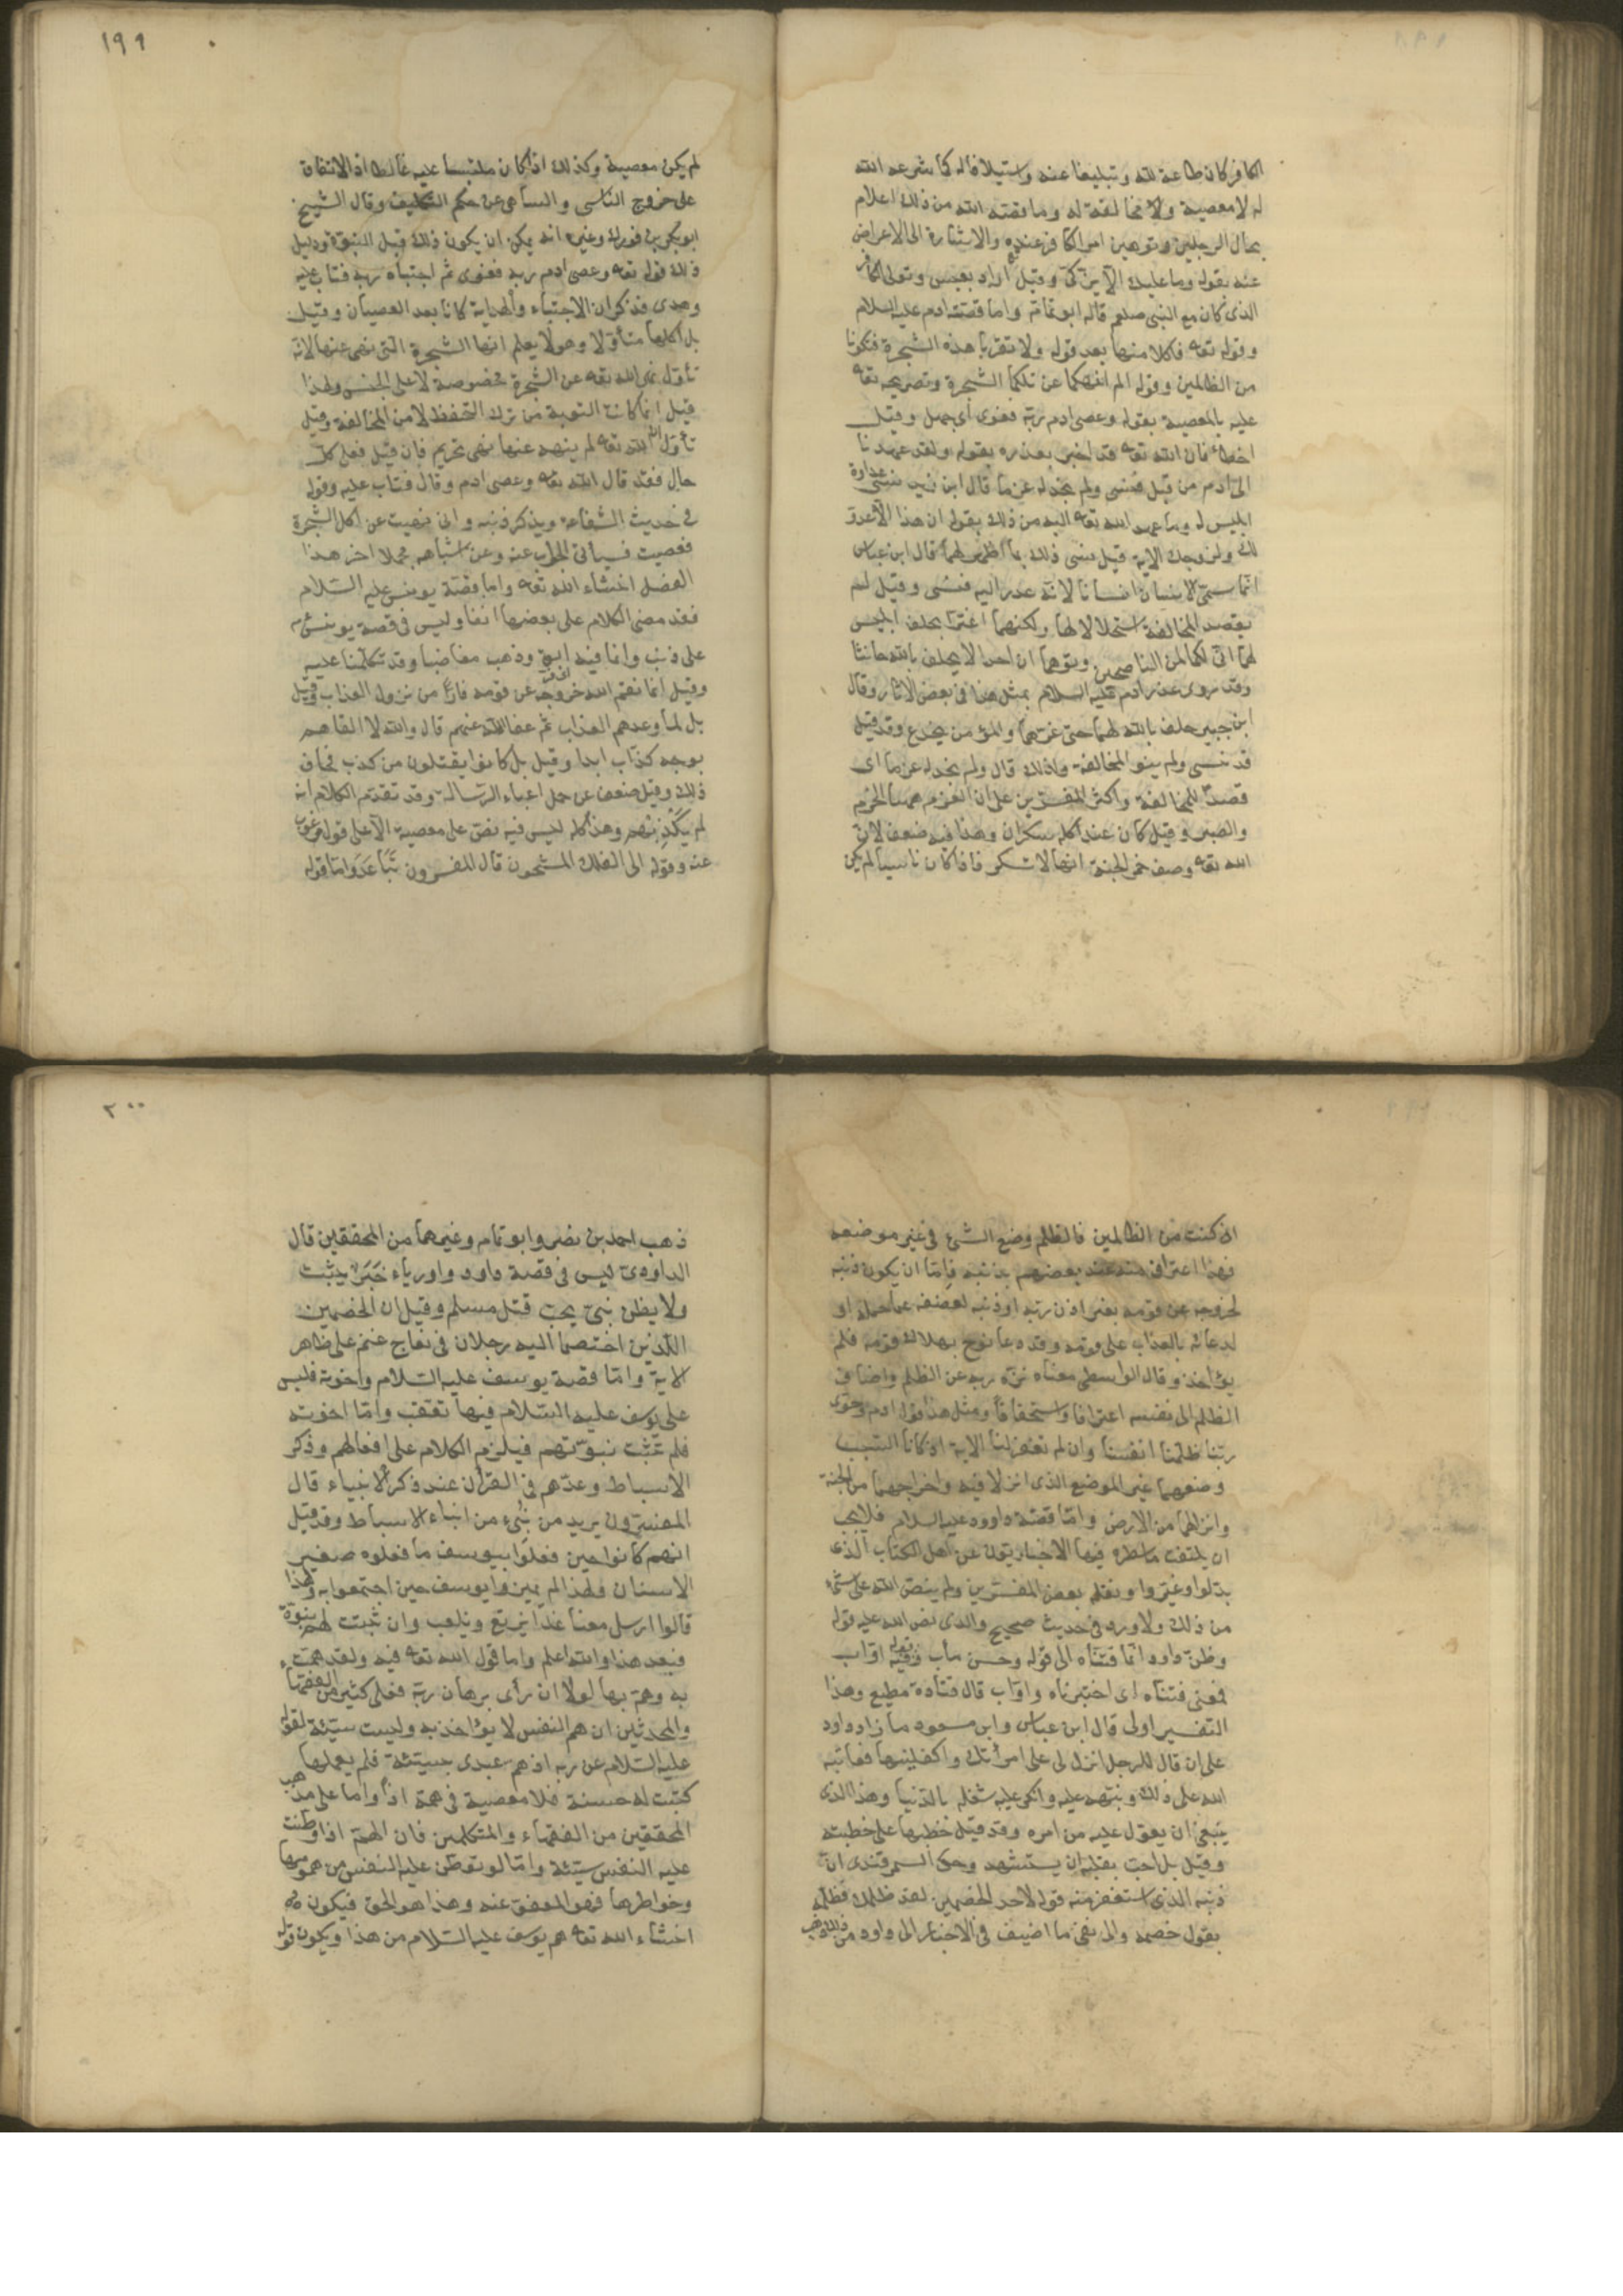 الكافر كان طاعة لله وتبليغا عنه واستيلافا له كما شرعه الله
له لا معصية ولا مخالفة له وما قصه الله من ذلك اعلام
بحال الرجلين وتوهين امر الكافر عنده والاشارة الى الاعراض
عنه بقوله وما عليك الا يزكى وقيل اراد بعبس وتولى الكافر
الذى كان مع النبى صلعم قاله ابو تمام واما قصة ادم عليه السلام
وقوله تعه فاكلا منها بعد قوله ولا تقربا هذه الشجرة فتكونا
من الظالمين وقوله الم انهكما عن تلكما الشجرة وتصريحه تعه
عليه بالمعصية بقوله وعصى ادم ربه فغوى اى جهل وقيل
اخطاء فان الله تعه قد اخبر بعذره بقوله ولقد عهدنا
الى ادم من قبل فنسى ولم نجد له عزما قال ابن زيد نسى عداوة
ابليس له وما عهد الله تعه اليه من ذلك بقوله ان هذا عدو
لك ولزوجك الاية قيل نسى ذلك بما اظهر لهما قال ابن عباس
انما سمى الانسان انسانا لانه عهد اليه فنسى وقيل لم
يقصد المخالفة استحلالا لها ولكنهما اغترا بحلف ابليس
لهما انى لكما لمن الناصحين وتوهما ان احدا لا يحلف بالله حانثا
وقد روى عذر ادم عليه السلام بمثل هذا فى بعض الاثار وقال
ابن جبير حلف بالله لهما حتى غرهما والمؤمن يخدع وقد قيل
قد نسى ولم ينو المخالفة ولذلك قال ولم نجد له عزما اى
قصدا للمخالفة واكثر المفسرين على ان العزم هنا الحزم
والصبر وقيل كان عند اكله سكران وهذا فيه ضعف لان
الله تعه وصف خمر الجنة انها لا تسكر فاذا كان ناسيا لم يكن
١٩٩
لم يكن معصية وكذلك اذا كان ملتبسا عليه غالطا اذ الاتفاق
على خروج الناسى والساهى عن حكم التكليف وقال الشيخ
ابو بكر بن فورك وغيره انه يمكن ان يكون ذلك قبل النبوة ودليل
ذلك قوله تعه وعصى ادم ربه فغوى ثم اجتباه ربه فتاب عليه
وهدى فذكر ان الاجتباء والهداية كانا بعد العصيان وقيل
بل اكلها متأولا وهو لا يعلم انها الشجرة التى نهى عنها لانه
تأول نهى الله تعه عن الشجرة مخصوصة لا على الجنس ولهذا
قيل انما كانت التوبة من ترك التحفظ لا من المخالفة وقيل
تأول ان الله تعه لم ينهه عنها نهى تحريم فان قيل فعلى كل
حال فقد قال الله تعه وعصى ادم وقال فتاب عليه وقوله
فى حديث الشفاعة ويذكر ذنبه وانى نهيت عن اكل الشجرة
فعصيت فسيأتى الجواب عنه وعن اشباهه مجملا اخر هذا
الفصل انشاء الله تعه واما قصة يونس عليه السلام
فقد مضى الكلام على بعضها انفا وليس فى قصة يونس
على ذنب وانما فيه ابق وذهب مغاضبا وقد تكلمنا عليه
وقيل انما نقم الله خروجه عن قومه فارا من نزول العذاب وقيل
بل لما وعدهم العذاب ثم عفا الله عنهم قال والله لا القاهم
بوجه كذاب ابدا وقيل بل كانوا يقتلون من كذب فخاف
ذلك وقيل ضعف عن حمل اعباء الرسالة وقد تقدم الكلام انه
لم يكذبهم وهذا كله ليس فيه نص على معصية الا على قول مرغوب
عنه وقوله الى الفلك المشحون قال المفسرون تباعد واما قوله
انى كنت من الظالمين فالظلم وضع الشئ فى غير موضعه
فهذا اعتراف منه عند بعضهم بذنبه فاما ان يكون ذنبه
لخروجه عن قومه بغير اذن ربه او ذنبه لضعفه عما حمله او
لدعائه بالعذاب على قومه وقد دعا نوح بهلاك قومه فلم
يؤاخذ وقال الواسطى معناه نزه ربه عن الظلم واضاف
الظلم الى نفسه اعترافا واستحقاقا ومثل هذا قول ادم وحوى
ربنا ظلمنا انفسنا وان لم تغفر لنا الاية اذ كانا السبب
وضعهما غير الموضع الذى انزلا فيه واخراجهما من الجنة
وانزالهما من الارض واما قصة داوود عليه السلام فلا يجب
ان يلتفت ما سطره فيها الاخباريون عن اهل الكتاب الذى
بدلوا وغيروا ونقله بعض المفسرين ولم ينص الله على شئ
من ذلك ولا ورد فى حديث صحيح والذى نص الله عليه قوله
وظن داود انما فتناه الى قوله وحسن مأب وقوله فيه اواب
فمعنى فتناه اى اختبرناه واواب قال قتادة مطيع وهذا
التفسير اولى قال ابن عباس وابن مسعود ما زاد داود
على ان قال للرجل انزل لى على امرأتك واكفلنيها فعاتبه
الله على ذلك ونبهه عليه وانكر عليه شغله بالدنيا وهذا الذى
ينبغى ان يعول عليه من امره وقد قيل خطبها على خطبته
وقيل بل احب بقلبه ان يستشهد وحكى السمرقندى ان
ذنبه الذى استغفر منه قوله لاحد الخصمين لقد ظلمك فظلمه
بقول خصمه والى نفى ما اضيف فى الاخبار الى داود من ذلك ذهب
٢٠٠
ذهب احمد بن نصر وابو تمام وغيرهما من المحققين قال
الداودى ليس فى قصة داود واورياء خبر يثبت
ولا يظن بنبى يحب قتل مسلم وقيل ان الخصمين
اللذين اختصما اليه رجلان فى نعاج غنم على ظاهر
الاية واما قصة يوسف عليه السلام واخوته فليس
على يوسف عليه السلام فيها تعقب واما اخوته
فلم تثبت نبوتهم فيلزم الكلام على افعالهم وذكر
الاسباط وعدهم فى القرأن عند ذكر الانبياء قال
المفسرون يريد من نبئ من ابناء الاسباط وقد قيل
انهم كانوا حين فعلوا بيوسف ما فعلوه صغير
الاسنان ولهذا لم يميزوا يوسف حين اجتمعوا به ولهذا
قالوا ارسل معنا غدا نرتع ونلعب وان ثبتت لهم نبوة
فبعد هذا والله اعلم واما قول الله تعه فيه ولقد همت
به وهم بها لولا ان رأى برهان ربه فعلى كثير من الفقهاء
والمحدثين ان هم النفس لا يؤاخذ به وليست سيئة لقوله
عليه السلام عن ربه اذا هم عبدى بسيئة فلم يعملها
كتبت له حسنة فلا معصية فى همه اذا واما على مذهب
المحققين من الفقهاء والمتكلمين فان الهم اذا وطنت
عليه النفس سيئة واما لو توطن عليه النفس من همومها
وخواطرها فهو المعفو عنه وهذا هو الحق فيكون
انشاء الله تعه هم يوسف عليه السلام من هذا ويكون قوله